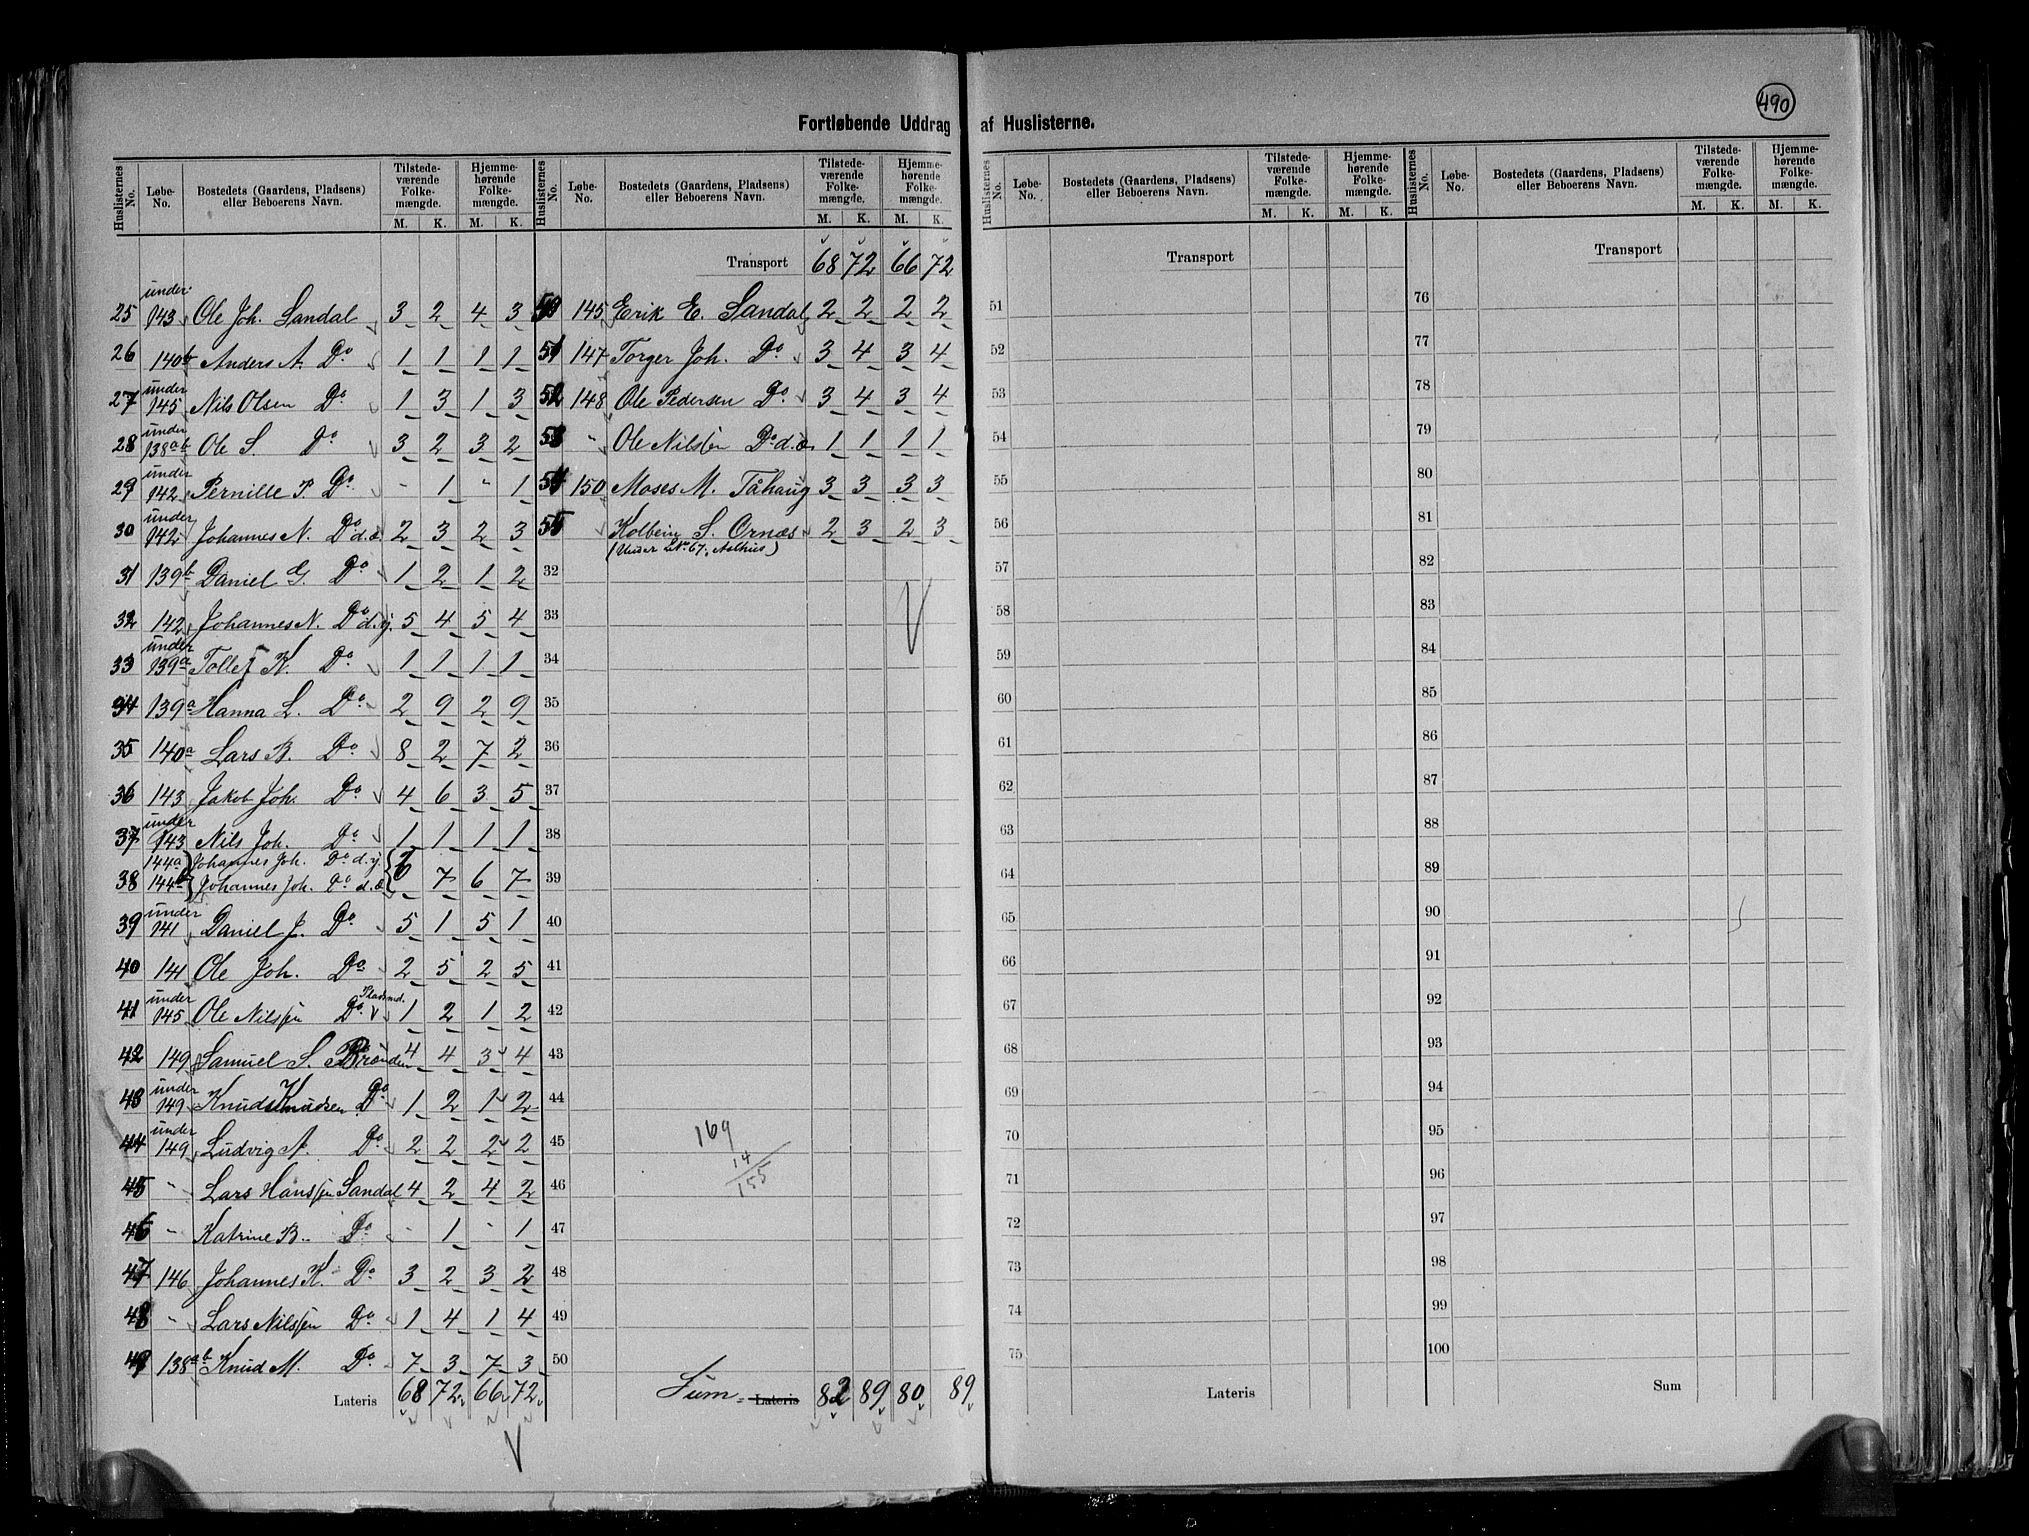 490
Fortløbende Uddrag af Huslisterne.
Huslisternes No. | Løbe-No. | Bostedets (Gaardens, Pladsens) eller Beboerens Navn. | Tilstede-værende Folke-mængde. M. K. | Hjemme-hørende Folke-mængde. M. K.
25 under 143 Ole Joh. Sandal 3 2 4 3
26 140b Anders A. Do 1 1 1 1
27 under 145 Nils Olsen Do 1 3 1 3
28 under 138ab Ole S. Do 3 2 3 2
29 under 142 Pernille P. Do - 1 - 1
30 under 142 Johannes N. Do d.æ. 2 3 2 3
31 139b Daniel G. Do 1 2 1 2
32 142 Johannes N. Do d.y. 5 4 5 4
33 under 139a Tollef K. Do 1 1 1 1
34 139a Hanna L. Do 2 9 2 9
35 140a Lars B. Do 8 2 7 2
36 143 Jakob Joh. Do 4 6 3 5
37 under 143 Nils Joh. Do 1 1 1 1
144a Johannes Joh. Do d.y.
38 144b Johannes Joh. Do d.æ 6 7 6 7
39 under 141 Daniel J. Do 5 1 5 1
40 141 Ole Joh. Do 2 5 2 5
41 under 145 Ole Nilssen Do Pladsmd. 1 2 1 2
42 149 Samuel S. Brænden 4 4 3 4
43 under 149 Knud Knudsen Do 1 2 1 2
44 under 149 Ludvig A. Do 2 2 2 2
45 " Lars Hanssen Sandal 4 2 4 2
46 " Katrine B. Do - 1 - 1
47 146 Johannes K. Do 3 2 3 2
48 " Lars Nilssen Do 1 4 1 4
49 138ab Knud M. Do 7 3 7 3
Lateris 68 72 66 72
Huslisternes No. | Løbe-No. | Bostedets (Gaardens, Pladsens) eller Beboerens Navn. | Tilstede-værende Folke-mængde. M. K. | Hjemme-hørende Folke-mængde. M. K.
Transport 68 72 66 72
50 145 Erik E. Sandal 2 2 2 2
51 147 Torger Joh. Do 3 4 3 4
52 148 Ole Pedersen Do 3 4 3 4
53 " Ole Nilssen Do d.æ. 1 1 1 1
54 150 Moses M. Tåhaug 3 3 3 3
55 Kolbein S. Ornæs 2 3 2 3
(Under LNo 67, Aalhus)
32
33
34
35
36
37
38
39
40
41
42
43
44
45
169
14
155
46
47
48
49
50
Sum Lateris 82 89 80 89
Huslisternes No. | Løbe-No. | Bostedets (Gaardens, Pladsens) eller Beboerens Navn. | Tilstede-værende Folke-mængde. M. K. | Hjemme-hørende Folke-mængde. M. K.
Transport
51
52
53
54
55
56
57
58
59
60
61
62
63
64
65
66
67
68
69
70
71
72
73
74
75
Lateris
Huslisternes No. | Løbe-No. | Bostedets (Gaardens, Pladsens) eller Beboerens Navn. | Tilstede-værende Folke-mængde. M. K. | Hjemme-hørende Folke-mængde. M. K.
Transport
76
77
78
79
80
81
82
83
84
85
86
87
88
89
90
91
92
93
94
95
96
97
98
99
100
Sum